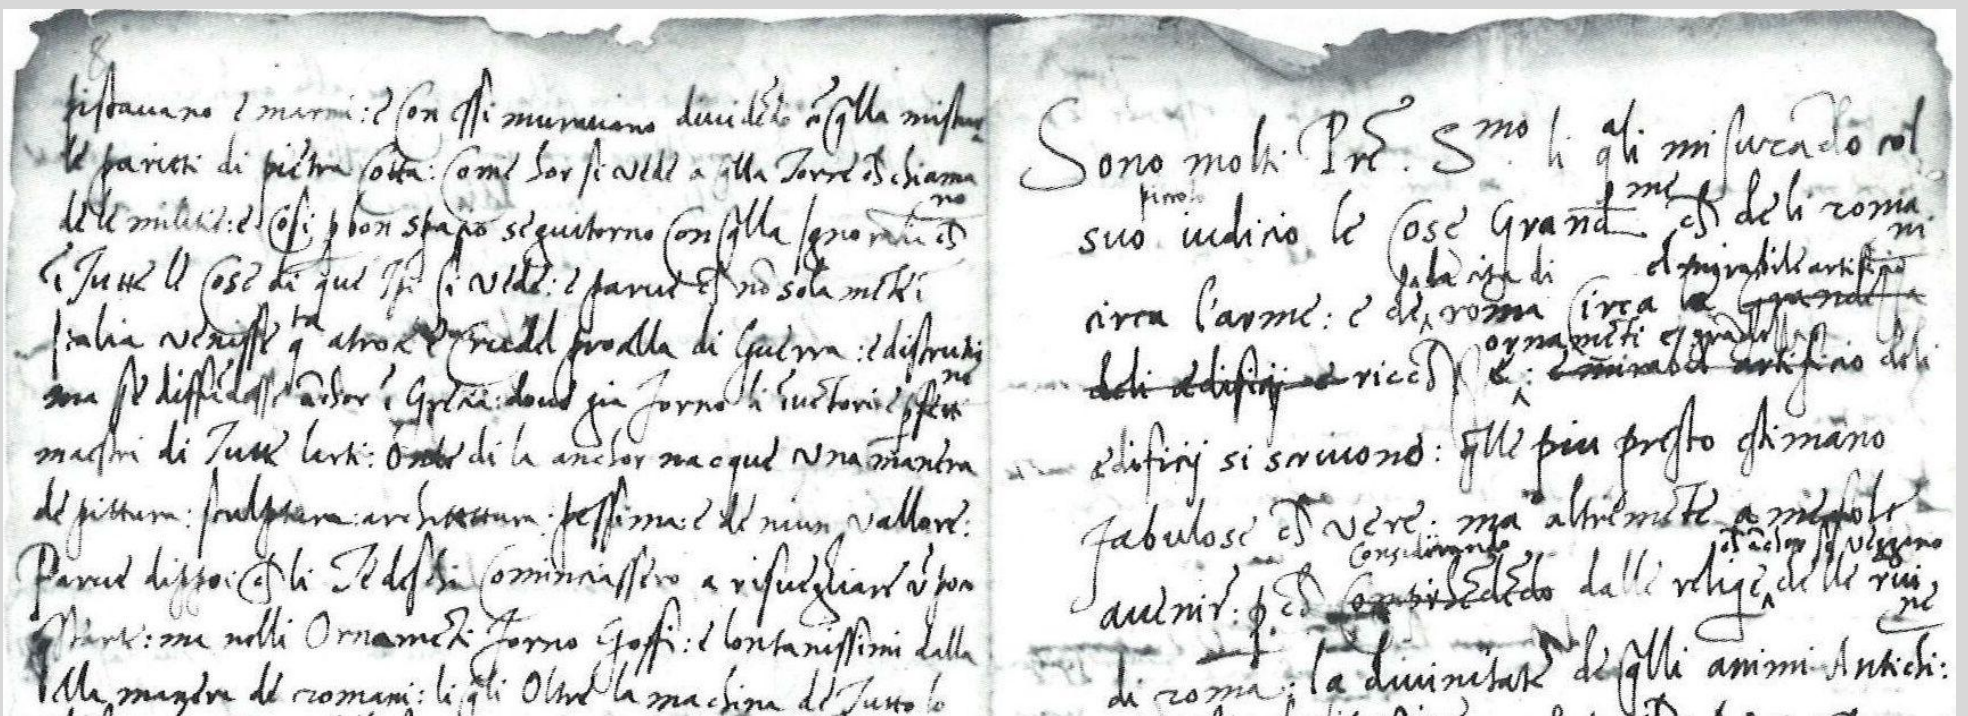 8
pistavano e marmi: e con essi muravano dividẽdo cõ q̃lla mistura
le parieti di pietra cotta: come hor si vede a q̃lla Torre ch̃ chiamano
de le militie: e cosi p bon spatio seguitorno con q̃lla ignorãtia ch̃
ĩ Tutte le cose di que Tp̃i si vede: e parue ch̃ nõ solamẽte ĩ
Italia venisse q̃ta atroce e crudel procella di Guerra: e distrutione
ma se diffũdesse ãchor ĩ Grecia: doue gia forno li ĩuẽtori e pfetti
mastri di Tutte larti: Onde di la anchor nacque una manera
de pittura: sculptura: architettura: pessima: e de niun vallore:
Parue dippoi ch̃ li Tedeschi Cominciassero a risuegliare ũ poco
q̃starte: ma nelli Ornamẽti forno Goffi: e lontanissimi dalla
bella manera de romani: li q̃li Oltre la machina de Tutto lo
Sono molti Prẽ. Smo li q̃li misurãdo col
suo piccolo iudicio le cose Grandme ch̃ de li romani
circa l'arme: e de la cita di roma circa el mirabile artificio
ricch̃i ornamẽti e grãdezza deli
edificij si scriuono: q̃lle piu presto estimano
fabulose ch̃ vere: ma altremẽte a me sole
auenire: p ch̃ Considirando dalle reliq̃e ch̃ ãchor si veggono delle ruine
di roma: la diuinitate de q̃lli animi Antichi: